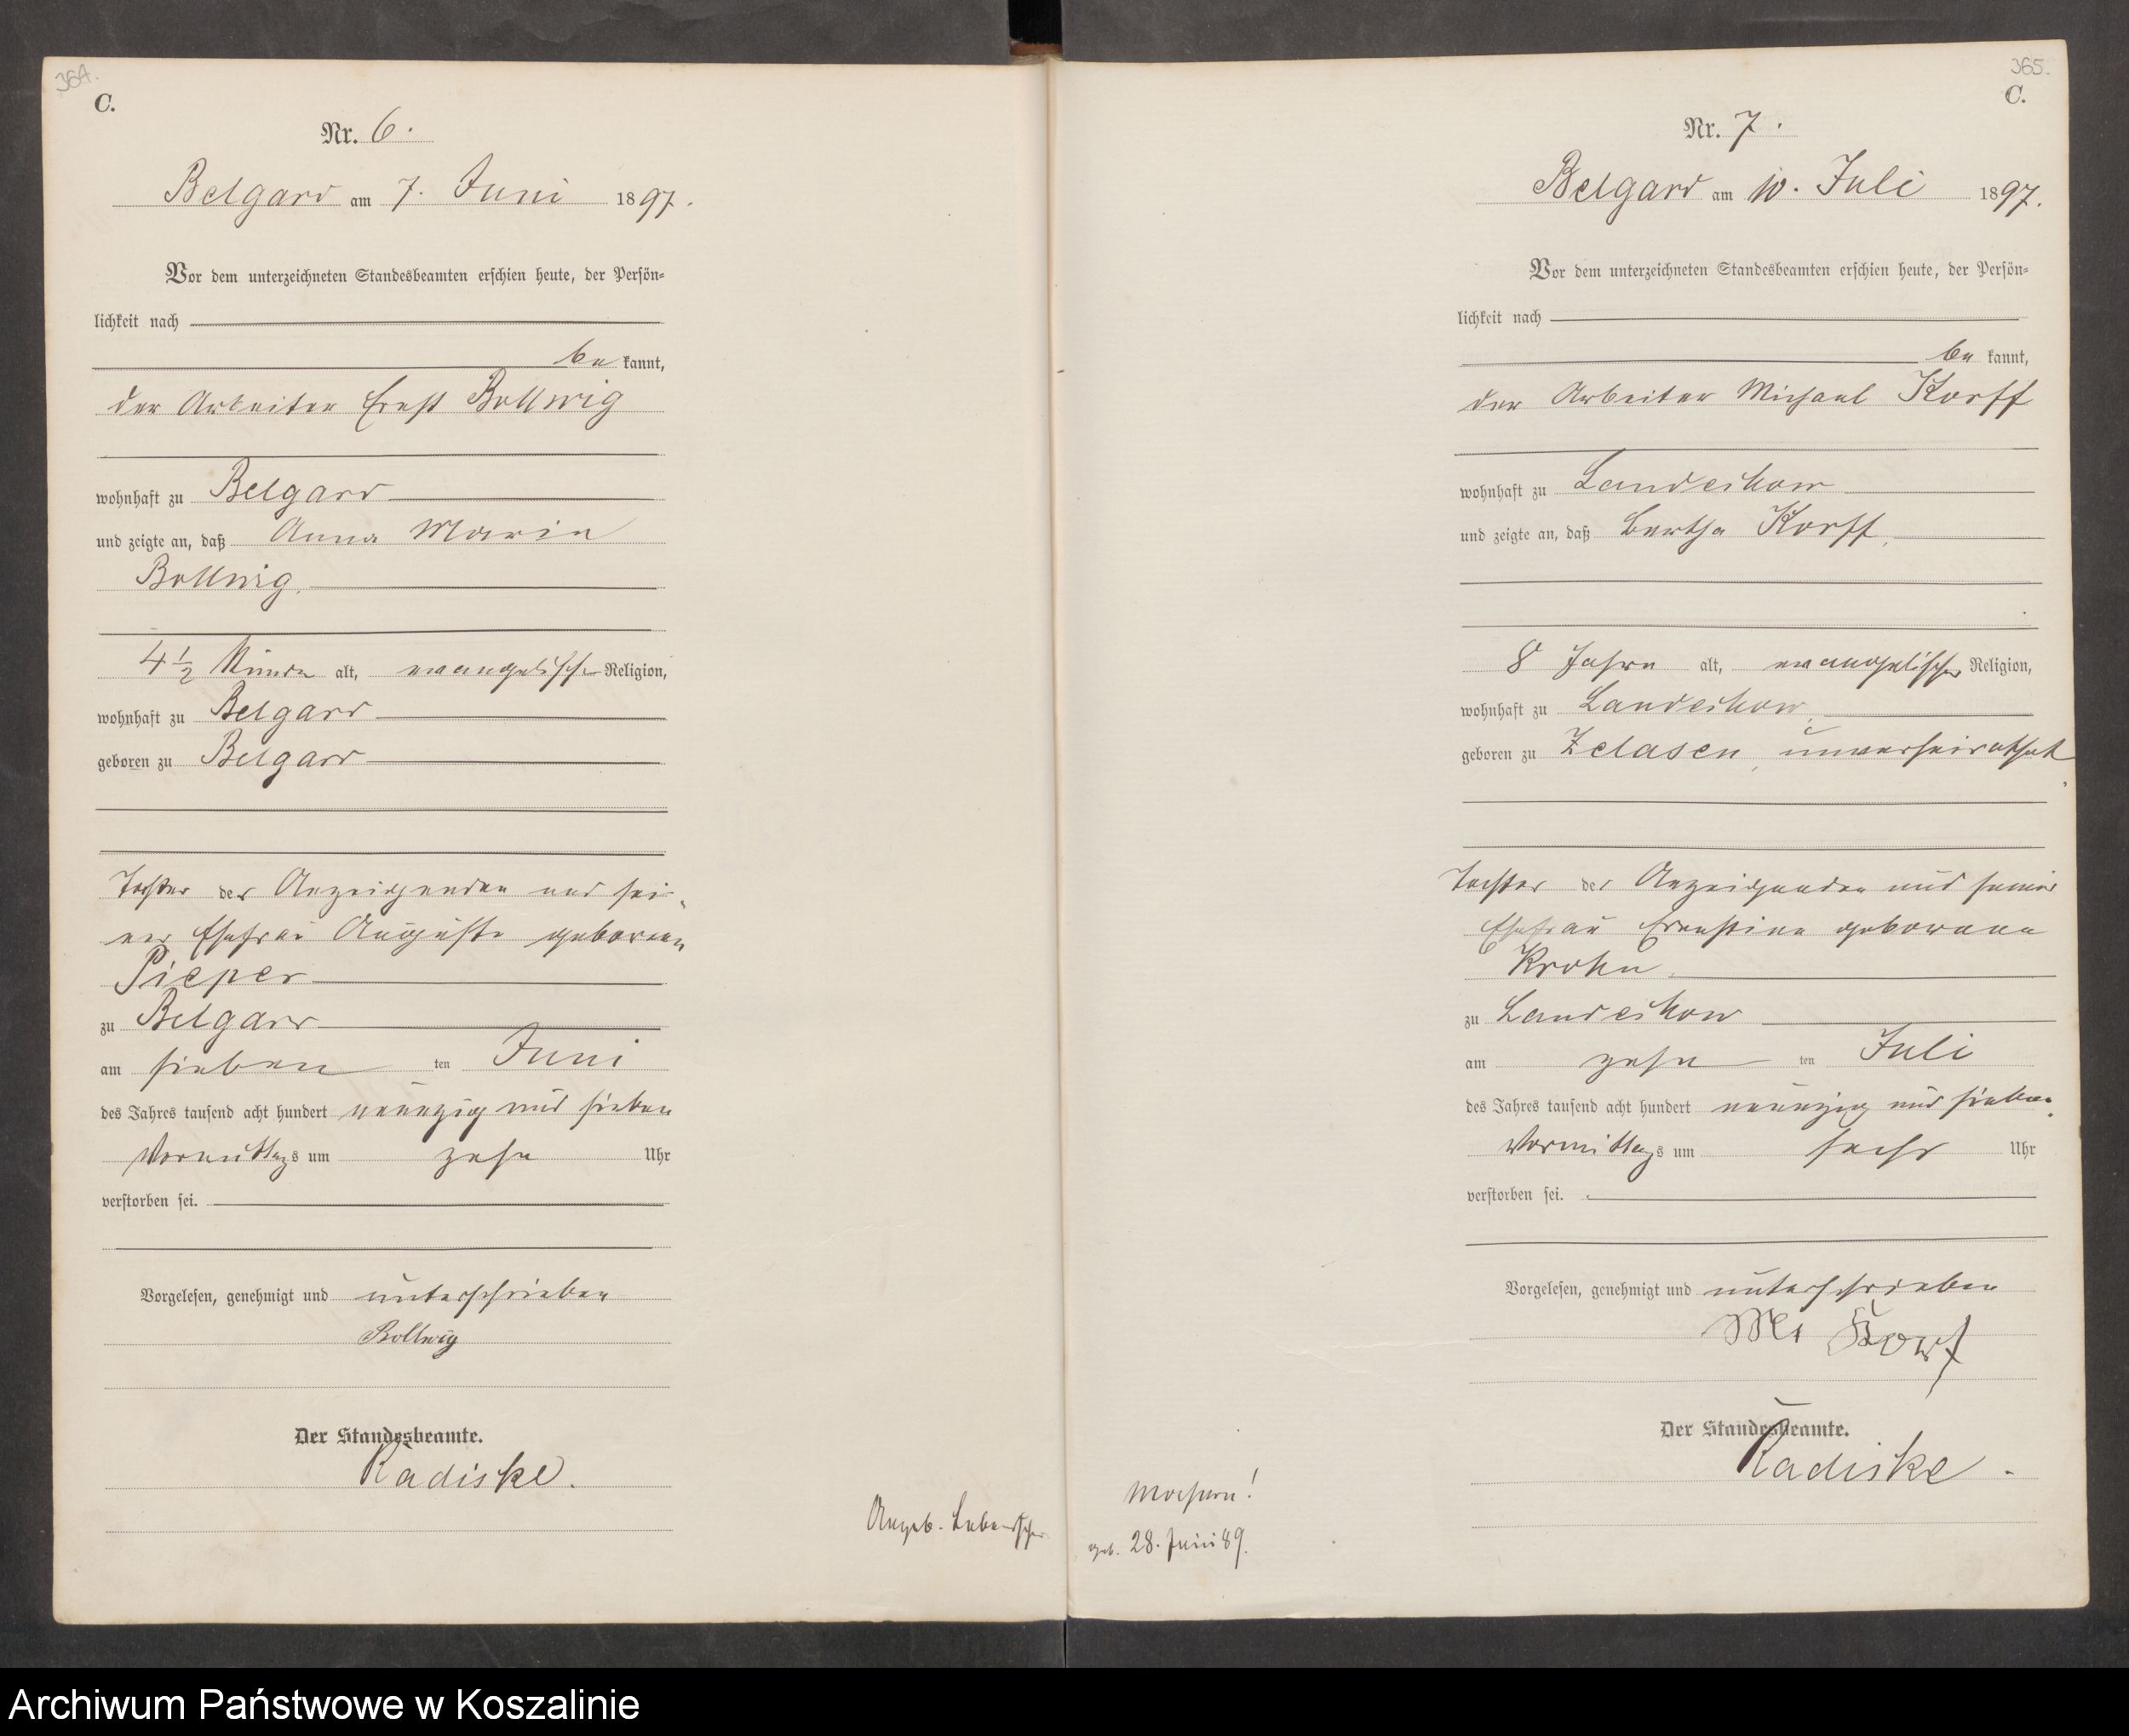 364.
C.
Nr. 6.
Belgard am 7. Juni 1897.
Vor dem unterzeichneten Standesbeamten erschien heute, der Persön-
lichkeit nach
be kannt,
der Arbeiter Ernst Bollwig
wohnhaft zu Belgard
und zeigte an, daß Anna Marie
Bollwig,
4 1/2 Stunde alt, evangelischer Religion,
wohnhaft zu Belgard
geboren zu Belgard
Tochter des Anzeigenden und sei-
ner Ehefrau Auguste geborenen
Pieper
zu Belgard
am sieben ten Juni
des Jahres tausend acht hundert neunzig und sieben
Vormittags um zehn Uhr
verstorben sei.
Vorgelesen, genehmigt und unterschrieben
Bollwig
Der Standesbeamte.
Radiske.
Angeb.
365.
C.
Nr. 7.
Belgard am 10. Juli 1897.
Vor dem unterzeichneten Standesbeamten erschien heute, der Persön-
lichkeit nach
be kannt,
der Arbeiter Michael Korff
wohnhaft zu Landechow
und zeigte an, daß Bertha Korff,
8 Jahre alt, evangelischer Religion,
wohnhaft zu Landechow,
geboren zu Zelasen, unverheirathet,
Tochter des Anzeigenden und seiner
Ehefrau Ernstine geborene
Krohn
zu Landechow
am zehn ten Juli
des Jahres tausend acht hundert neunzig und sieben
Vormittags um sechs Uhr
verstorben sei.
Vorgelesen, genehmigt und unterschrieben
Korf
Der Standesbeamte.
Radiske.
geb. 28. Juni 89.
Archiwum Państwowe w Koszalinie